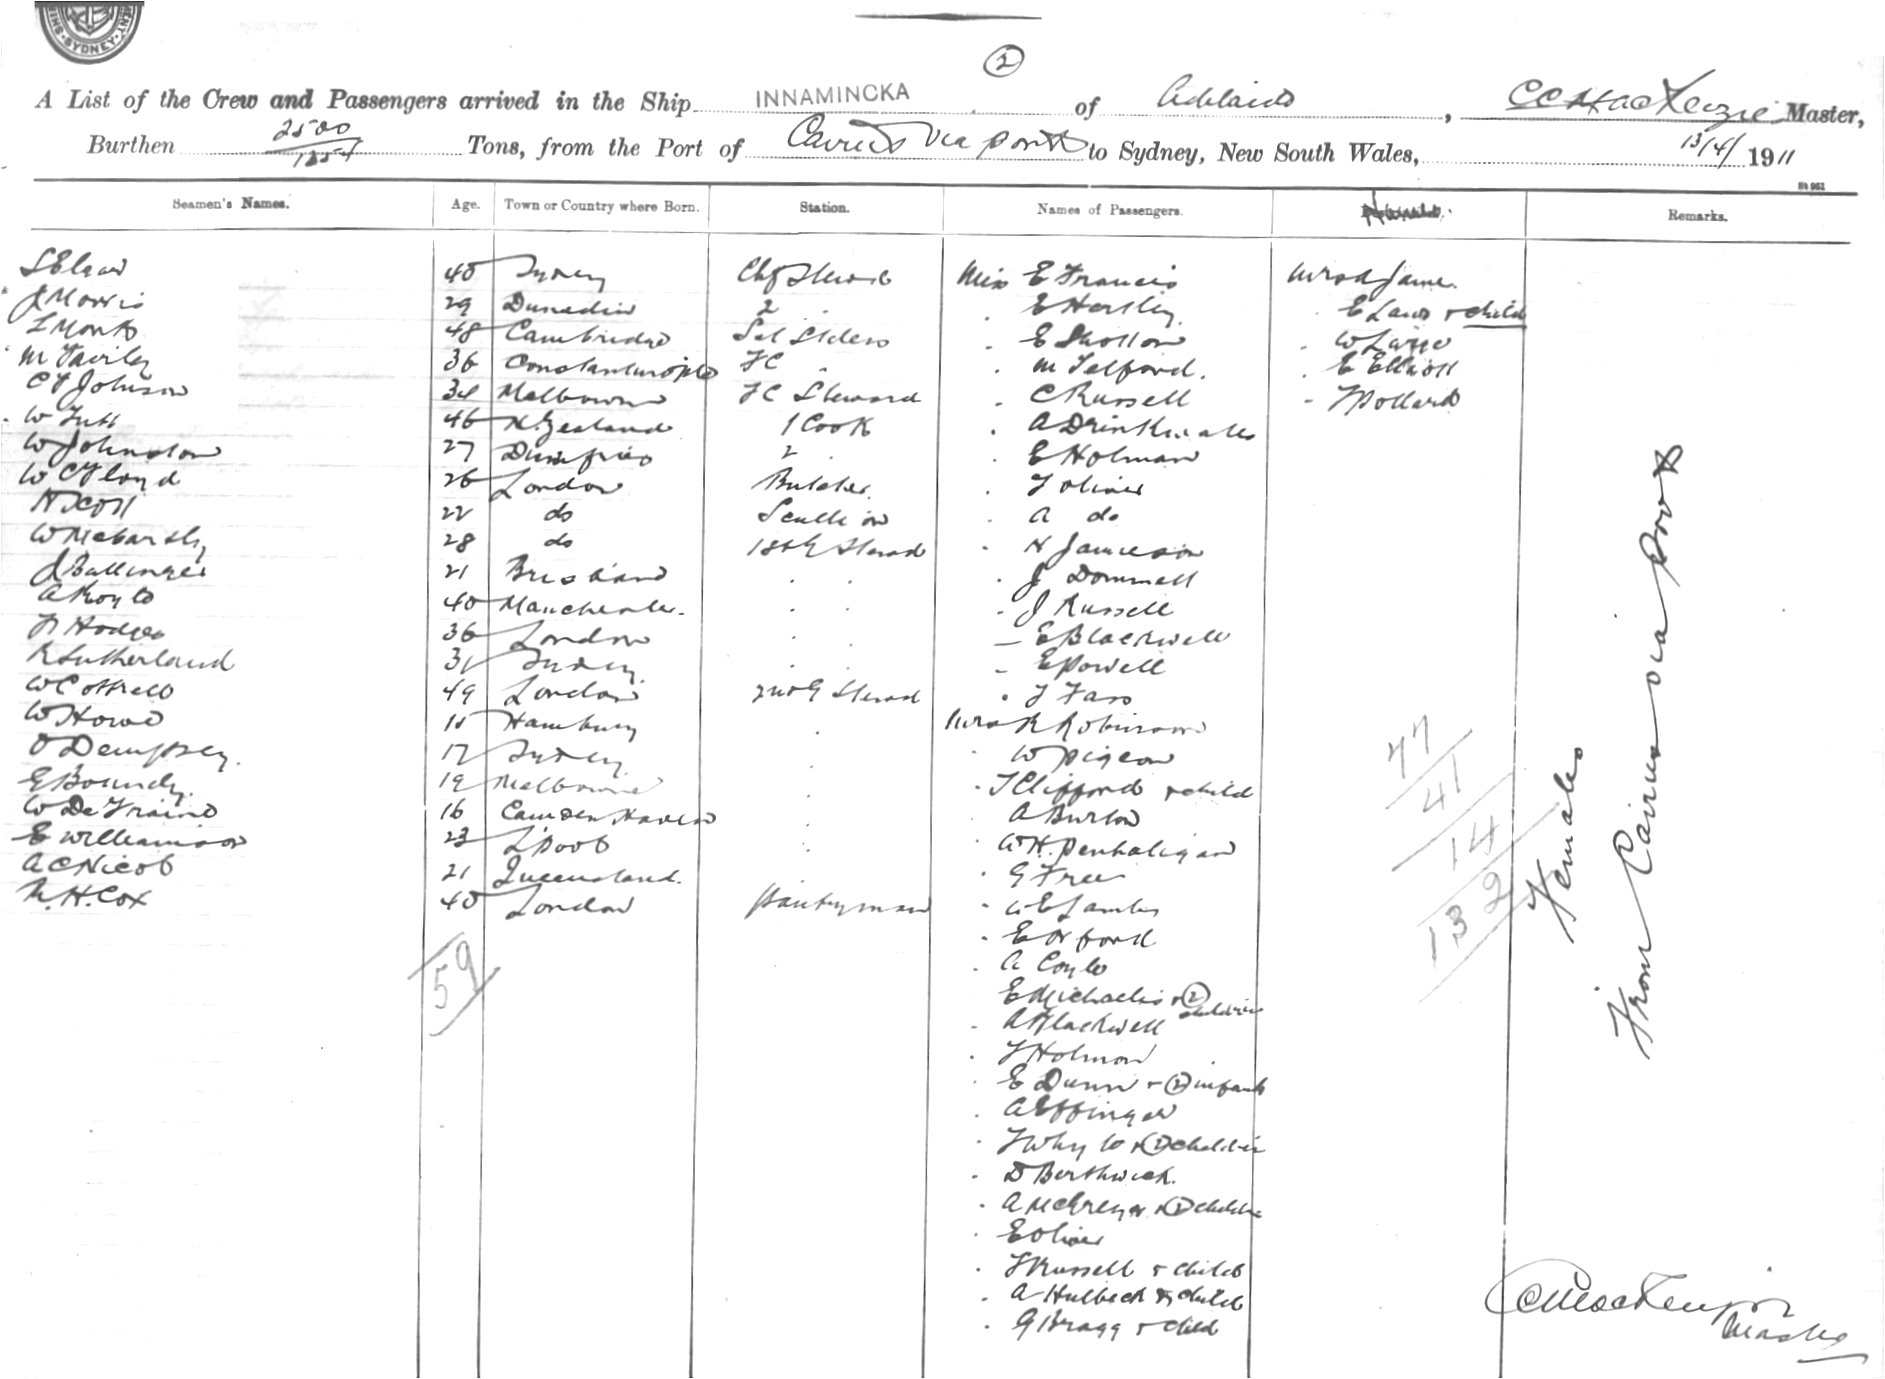 SYDNEY
2
A List of the Crew and Passengers arrived in the Ship INNAMINCKA of Adelaide, CC MacKenzie Master,
Burthen 2500 Tons, from the Port of Cairns via ports to Sydney, New South Wales, 13/4/ 1911
Seamen's Names. Age. Town or Country where Born. Station. Names of Passengers. Remarks.
40 Sydney Chf Steward Miss E Francis Mrs A Jame
J Morris 29 Dunedin 2 . E Hertley . E Laws & child
48 Cambridge . E Shollow . W Large
M Fairley 36 Constantinople FC . . M Telford. . E Elliott
C F Johnson 34 Melbourne FC Steward . C Russell . Pollard
W Tutt 46 N. Zealand 1 Cook . A Drinkwater
W Johnston 27 Dumfries 2 . . E Holman
W C Floyd 26 London Butcher. . T Oliver
N Scott 22 do Scullion . A do
28 do Steward . H Jamieson
J Ballinger 21 Brisbane . . . J Dommell
A Royle 40 Manchester. . . . J Russell
Hodges 36 London . . E Blackwell
R Sutherland 31 Sydney . . E Powell
W Cottrell 49 London Steward .
W Howe 18 Hamburg . Mrs R Robinson
O Dempsey. 17 Sydney . . W Pigeon
E Boundy. 19 Melbourne . . T Clifford & child
W De Fraine 16 Camden Haven . A Burton
E Williamson 23 L'pool . . W H. Penhaligan
A C Nicol 21 Queensland. . . G Free
H. Cox 40 London Pantryman .
. E Orford
. A Coyle
E Michaelis & 2 children
. A Blackwell
. T Holman
. E Dunn & 2 infants
. A Effinger
. T Whyte & 2 children
. D Berthwick.
. A McGregor & 2 children
. E Oliver
. T Russell & child
. A Hulbeck & child
. G Bragg & child
59
77
41
14
132
Females
From Cairns via Ports
CC MacKenzie
Master